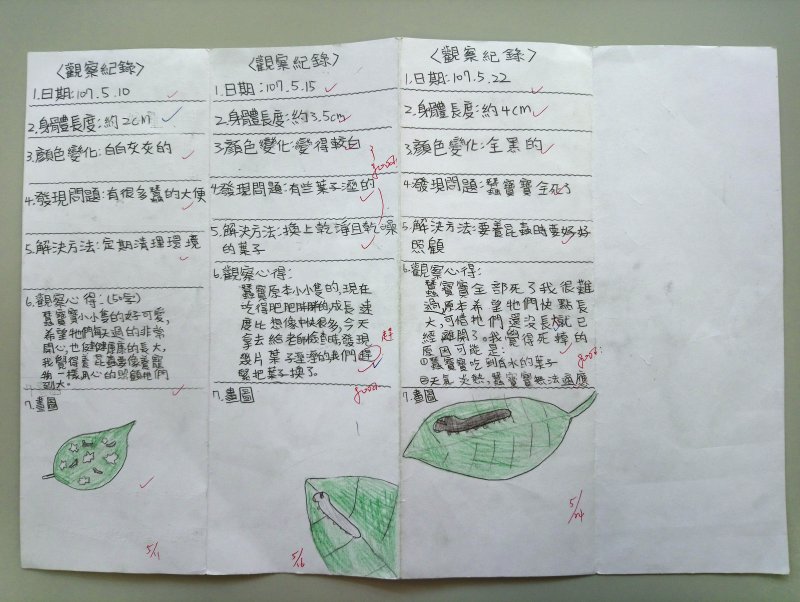 〈觀察紀錄〉
1.日期:107.5.10
2.身體長度:約2cm
3.顏色變化:白白灰灰的
4.發現問題:有很多蠶的大便
5.解決方法:定期清理環境
6.觀察心得:(50字)
蠶寶寶小小隻的好可愛,
希望牠們每天過的非常
開心,也健健康康的長大,
我覺得養昆蟲要像養寵
物一樣用心的照顧牠們
到大。
7.畫圖
5/11
〈觀察紀錄〉
1.日期:107.5.15
2.身體長度:約3.5cm
3.顏色變化:變得較白
good
4.發現問題:有些葉子溼的
5.解決方法:換上乾淨且乾燥
的葉子
6.觀察心得:
蠶寶原本小小隻的,現在
吃得肥肥胖胖的,成長速
度比想像中快很多,今天
拿去給老師檢查時,發現
幾片葉子溼溼的,我們趕
趕
緊把葉子換了。
good
7.畫圖
5/16
〈觀察紀錄〉
1.日期:107.5.22
2.身體長度:約4cm
3.顏色變化:全黑的
4.發現問題:蠶寶寶全死了
5.解決方法:要養昆蟲時要好好
照顧
6.觀察心得:
蠶寶寶全部死了我很難
過,原本希望牠們快點長
大,可惜牠們還沒長大就已
經離開了。我覺得死掉的
原因可能是:
①蠶寶寶吃到有水的葉子
②天氣炎熱,蠶寶寶無法適應
good
7.畫圖
5/24